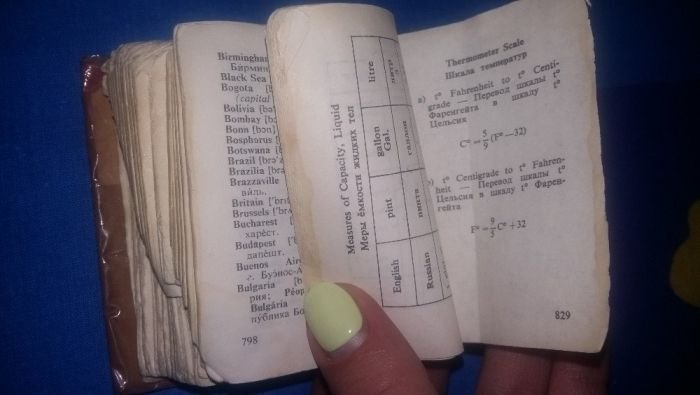 Birmingham
Black Sea
Bogota
[capital
Bolivia
Bombay
Bonn [bɔn]
Bosphorus
Botswana
Brazil
Brazilia
Brazzaville
виль.
Britain
Brussels
Bucharest
харест.
Budapest
дапешт.
Buenos
Bulgaria
рия;
Bulgária
публика
798
Measures of Capacity, Liquid
Меры ёмкости жидких тел
English
pint
gallon
Gal.
litre
Russian
пинта
галлон
литр
Thermometer Scale
Шкала температур
а) t° Fahrenheit to t° Centi-
grade — Перевод шкалы t°
Фаренгейта в шкалу t°
Цельсия
C° = 5/9 (F° — 32)
) t° Centigrade to t° Fahren-
heit — Перевод шкалы t°
Цельсия в шкалу t° Фарен-
гейта
F° = 9/5 C° + 32
829